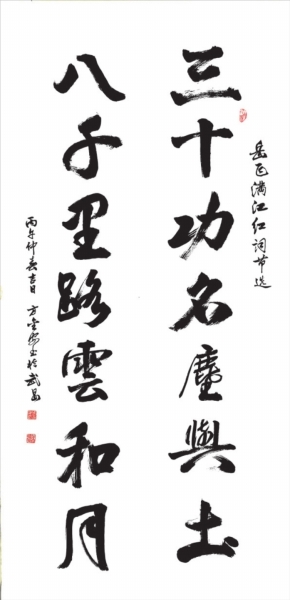 岳飞满江红词节选
三十功名塵與土
八千里路雲和月
丙午仲春吉日 方金
书於武昌